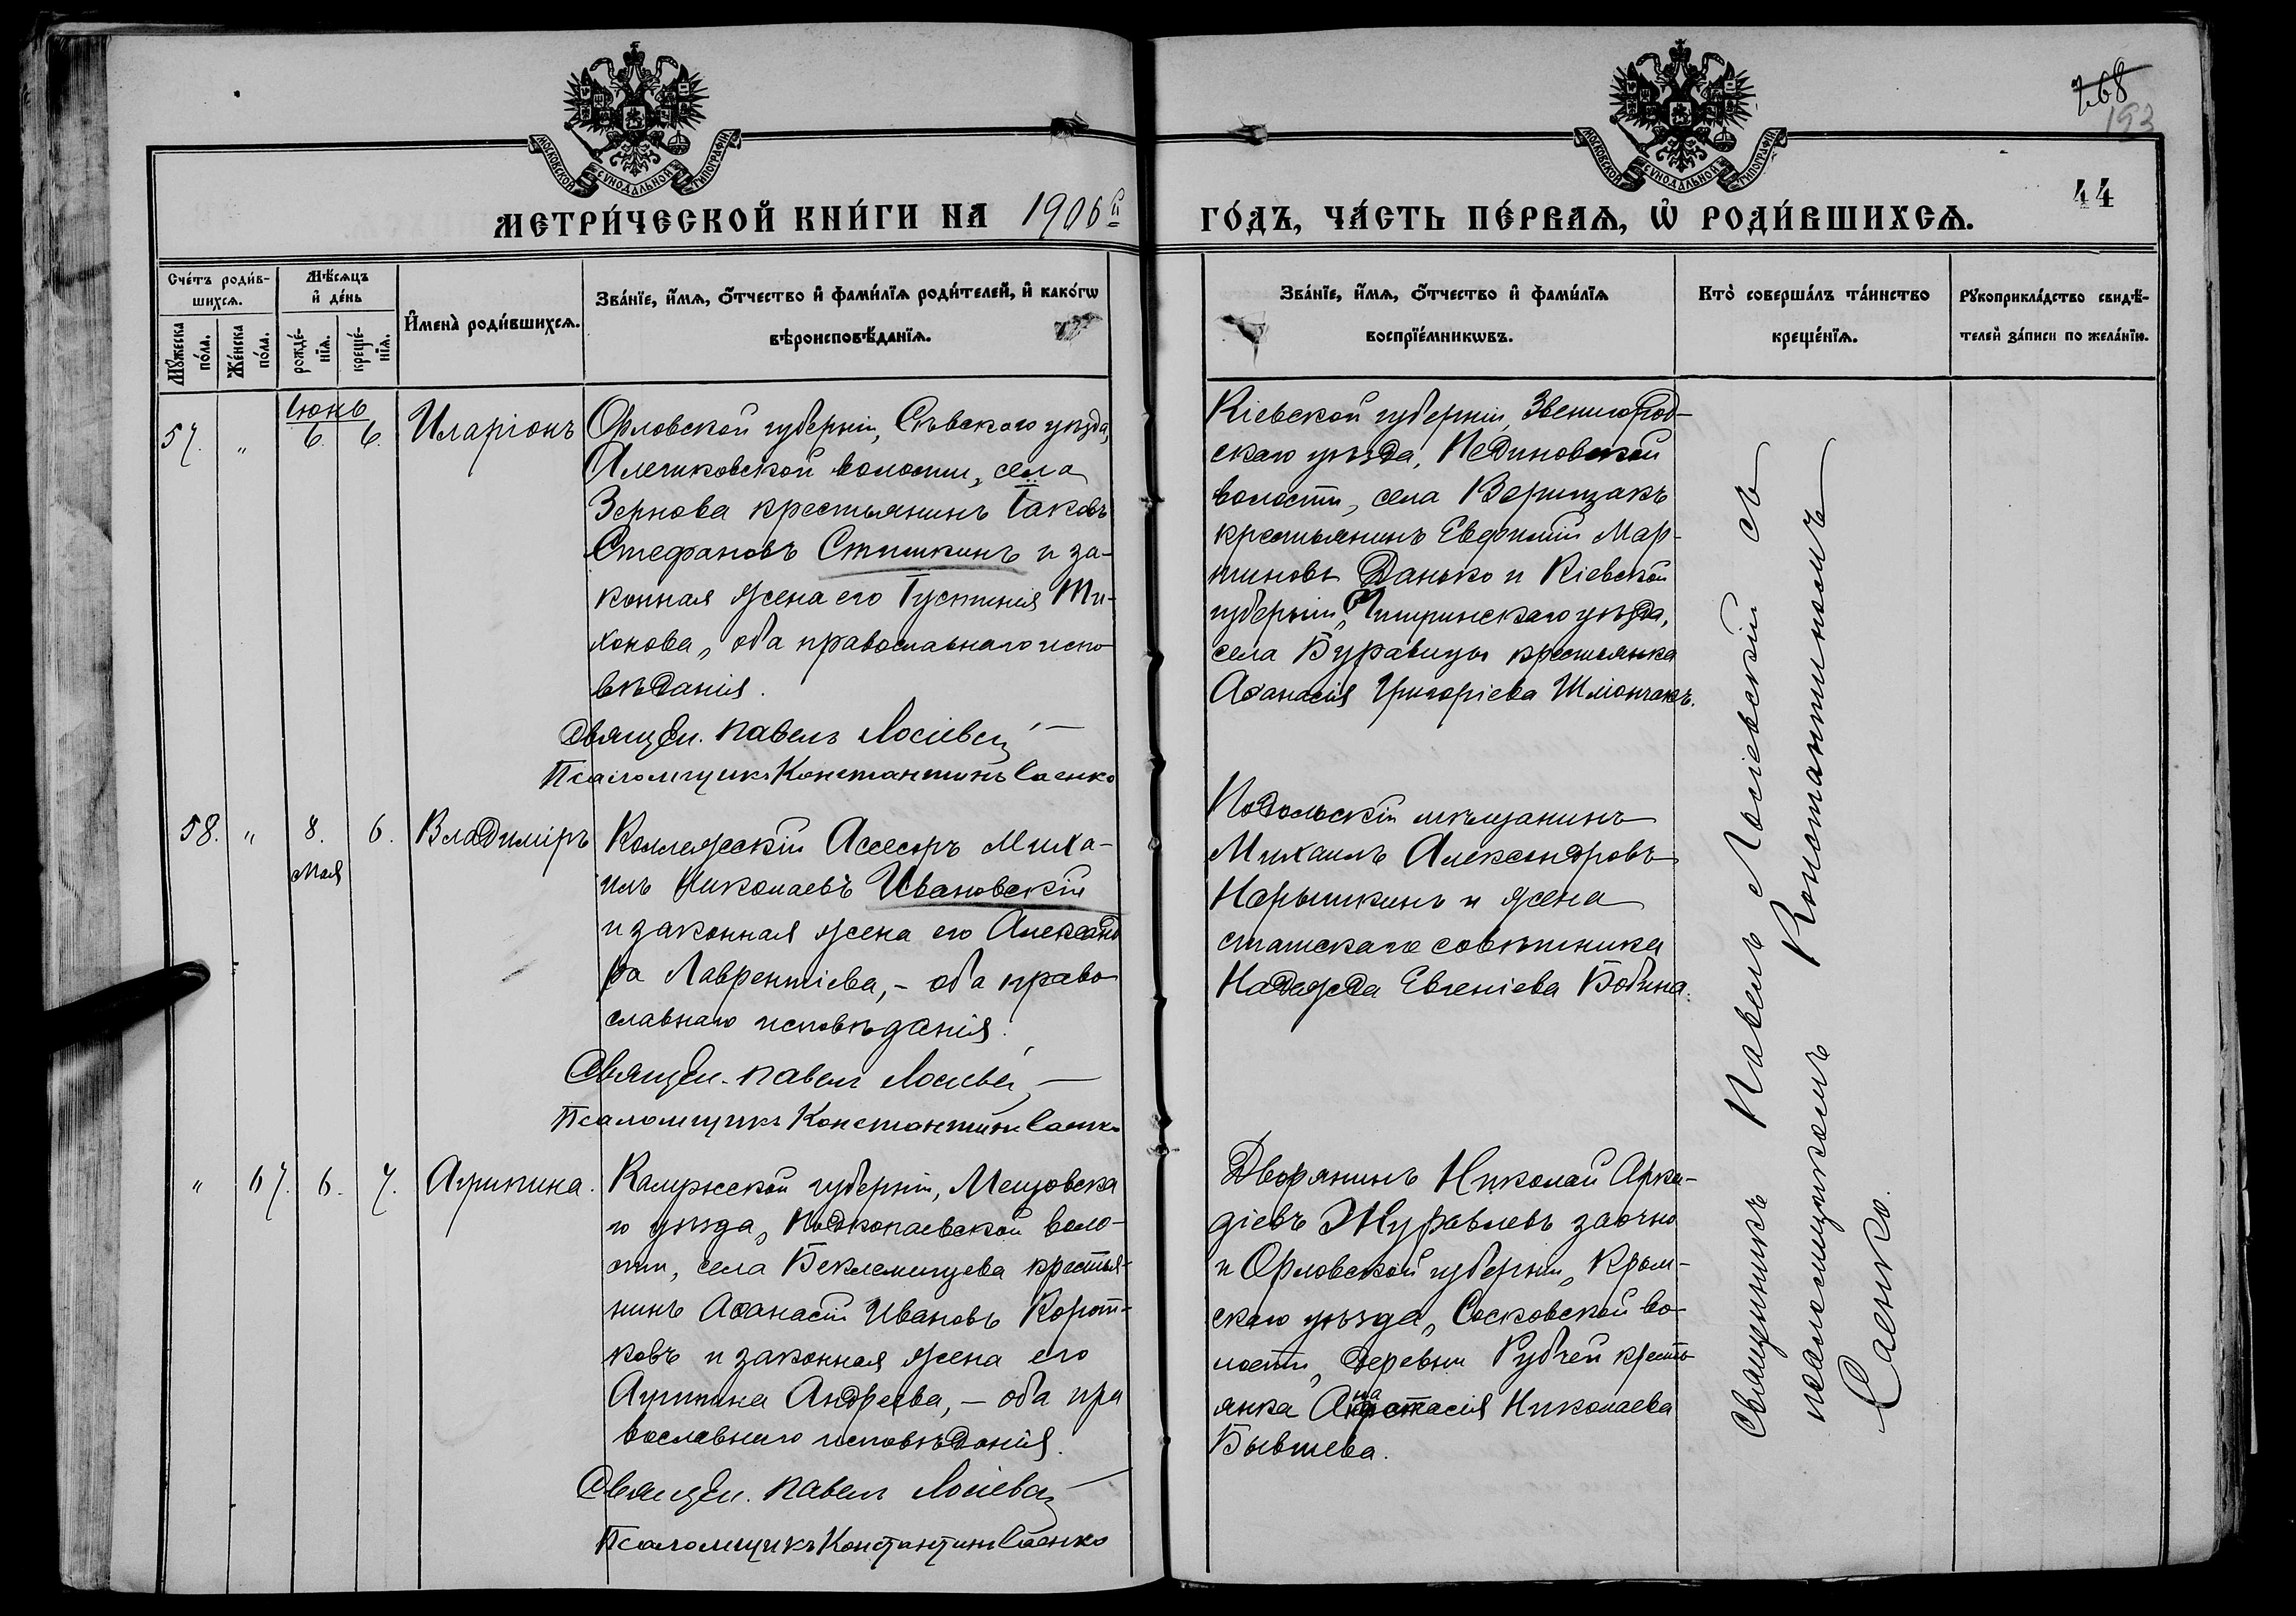 268
193
МОСКОВСКОЙ СѴНОДАЛЬНОЙ ТИПОГРАФІИ
МОСКОВСКОЙ СѴНОДАЛЬНОЙ ТИПОГРАФІИ
МЕТРИ́ЧЕСКОЙ КНИ́ГИ НА 1906й
ГО́ДЪ, ЧА́СТЬ ПЕ́РВАѦ, Ѡ҆ РОДИ́ВШИХСѦ.
44
Сче́тъ роди́в-
шихсѧ.
Мѣ́сѧцъ
и҆ де́нь
Мꙋ́жеска
по́ла.
Же́нска
по́ла.
рожде́-
нїѧ.
креще́-
нїѧ.
И҆мена̀ роди́вшихсѧ.
Зва́нїе, и҆́мѧ, ѻ҆́тчество и҆ фами́лїѧ роди́телей, и҆ како́гѡ
вѣроисповѣ́данїѧ.
Зва́нїе, и҆́мѧ, ѻ҆́тчество и҆ фами́лїѧ
воспрїе́мникѡвъ.
Кто̀ соверша́лъ та́инство
креще́нїѧ.
Рꙋкоприкла́дство свидѣ́-
телей за́писи по жела́нїю.
Іюнь
57. " 6. 6. Иларіонъ
Орловской губерніи, Сѣвскаго уѣзда,
Алешковской волости, села
Зернова крестьянинъ Іаковъ
Стефановъ Стишкинъ и за-
конная жена его Іустинія Ти-
хонова, оба православнаго испо
вѣданія.
Священ. Павелъ Лосіевскій
Псаломщикъ Константинъ Саенко
Кіевской губерніи, Звенигород-
скаго уѣзда, Кединовской
волости, села Верищакъ
крестьянинъ Евфимій Мар-
тиновъ Данько и Кіевской
губерніи, Чигиринскаго уѣзда,
села Буравицы крестьянка
Аѳанасія Григоріева
58. " 8. 6. Владиміръ
мая
Коллежскій Асессоръ Миха-
илъ Николаевъ Ивановскій
и законная жена его Александ
ра Лаврентіева, - оба право
славнаго исповѣданія.
Священ. Павелъ Лосіевскій
Псаломщикъ Константинъ Саенко
Подольскій мѣщанинъ
Михаилъ Александровъ
Нарышкинъ и жена
статскаго совѣтника
Надежда Евгеніева Бобина.
" 67. 6. 7. Агрипина.
Калужской губерніи, Мещовска
го уѣзда, Подкопаевской воло-
сти, села Беклемищева крестья-
нинъ Аѳанасій Ивановъ Корот-
ковъ и законная жена его
Агрипина Андреева, - оба пра
вославнаго исповѣданія.
Священ. Павелъ Лосіевскій
Псаломщикъ Константинъ Саенко
Дворянинъ Николай Арка-
діевъ Журавлевъ заочно
и Орловской губерніи, Кром-
скаго уѣзда, Сосковской во-
лости, деревни Рубчей кресть
янка Анастасія Николаева
Бывшева.
Священникъ Павелъ Лосіевскій съ
псаломщикомъ Константиномъ
Саенко.